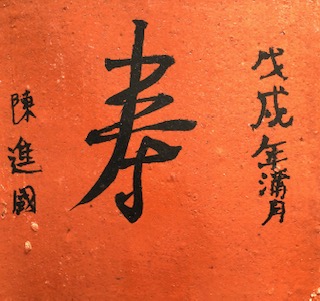 戊戌年蒲月
寿
陳進國